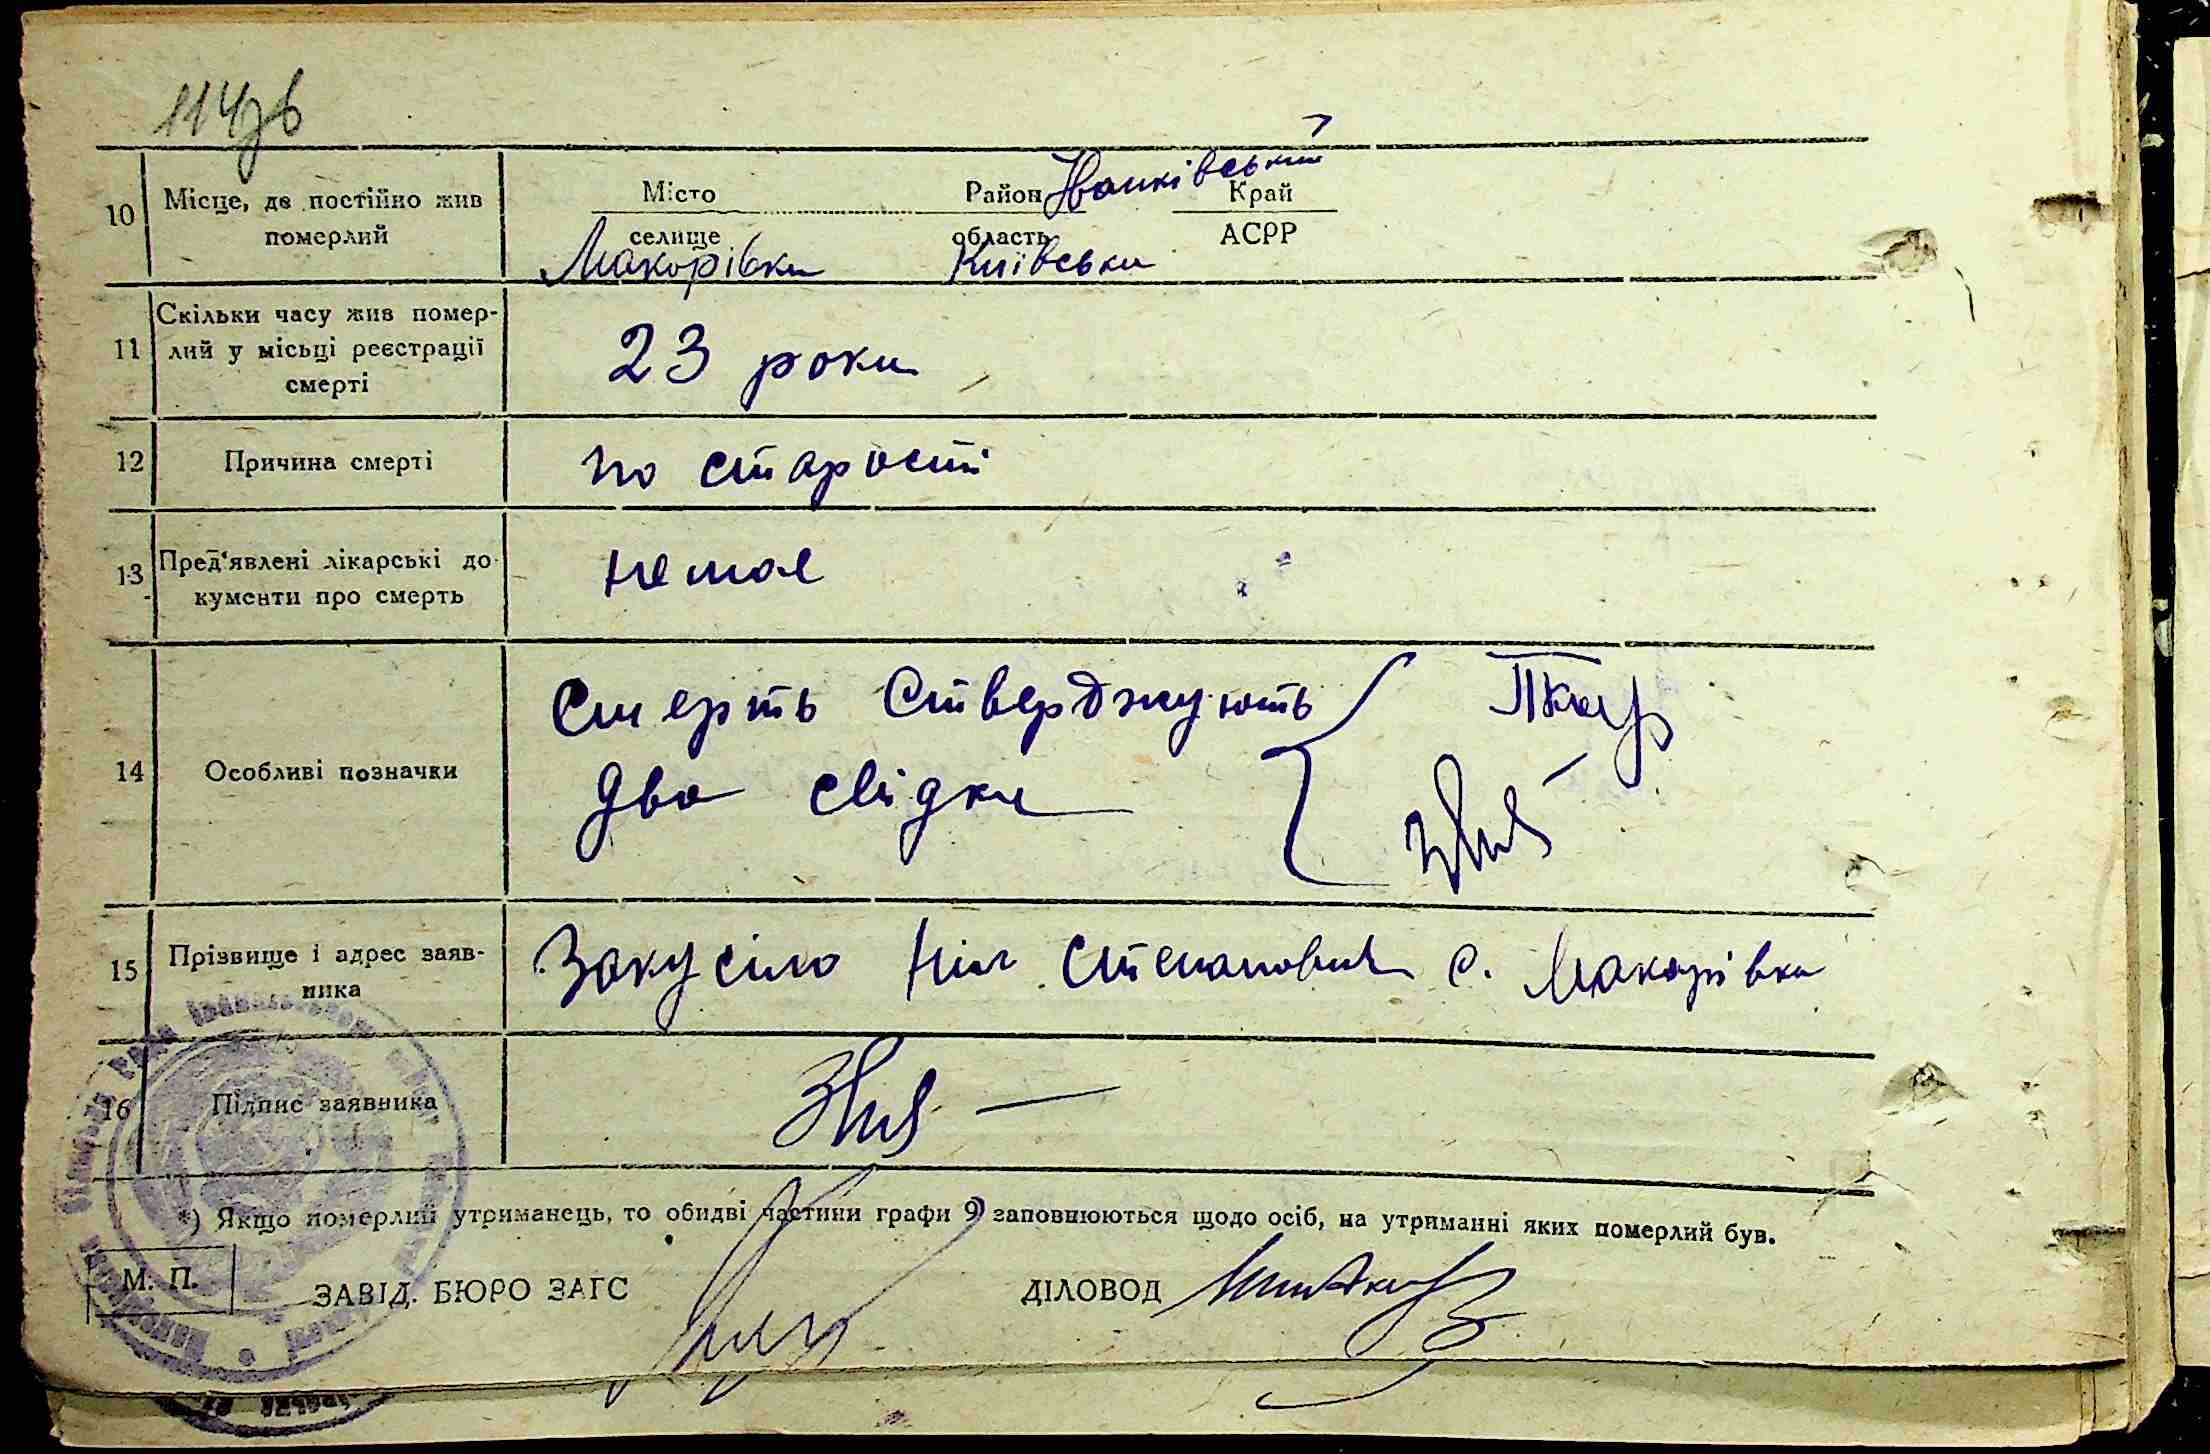 114зв
10 Місце, де постійно жив померлий
Місто Район Іванківський Край
селище область АСРР
Макорівка Київська
11 Скільки часу жив помер-
лий у місьці реєстрації
смерті
23 роки
12 Причина смерті по старості
13 Пред'явлені лікарські до-
кументи про смерть
немає
14 Особливі позначки
Смерть стверджують
два свідки
15 Прізвище і адрес заяв-
ника
Закусіло Ніл Степанович с. Макорівка
16 Підпис заявника
*) Якщо померлий утриманець, то обидві частини графи 9) заповнюються щодо осіб, на утриманні яких померлий був.
М. П. ЗАВІД. БЮРО ЗАГС ДІЛОВОД